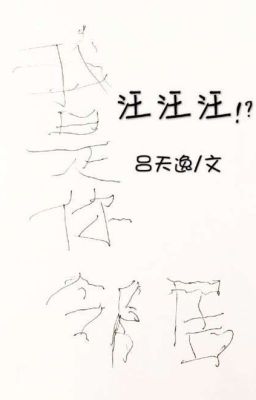 汪汪汪!?
吕天逸/文
我
是
你
邻居